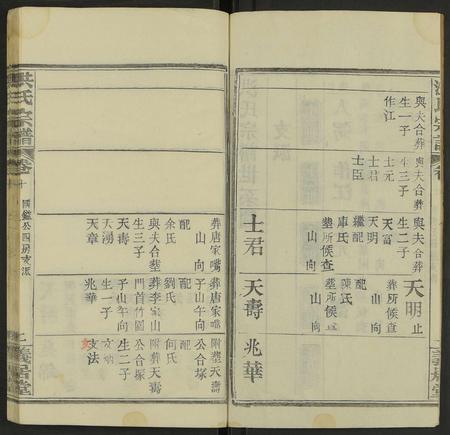 與夫合葬
生一子
作江
與夫合葬
生三子
士元
士君
士臣
與夫合葬
生二子
天富
天明
繼配
庫氏
塋所俟查
山 向
士君
天明止
葬所俟查
山 向
配
陳氏
塋所俟查
山 向
天壽
兆華
葬唐家嘴
山 向
配
余氏
與夫合塟
生三子
天壽
天湧
天章
葬唐家嘴
子山午向
配
劉氏
葬李家山
門首竹園
子山午向
生一子
兆華
附塟天壽
公合塚
配
何氏
附葬天壽
公合塚
生二子
文法
洪氏宗譜
卷十
國鑑公四房支派
義居堂